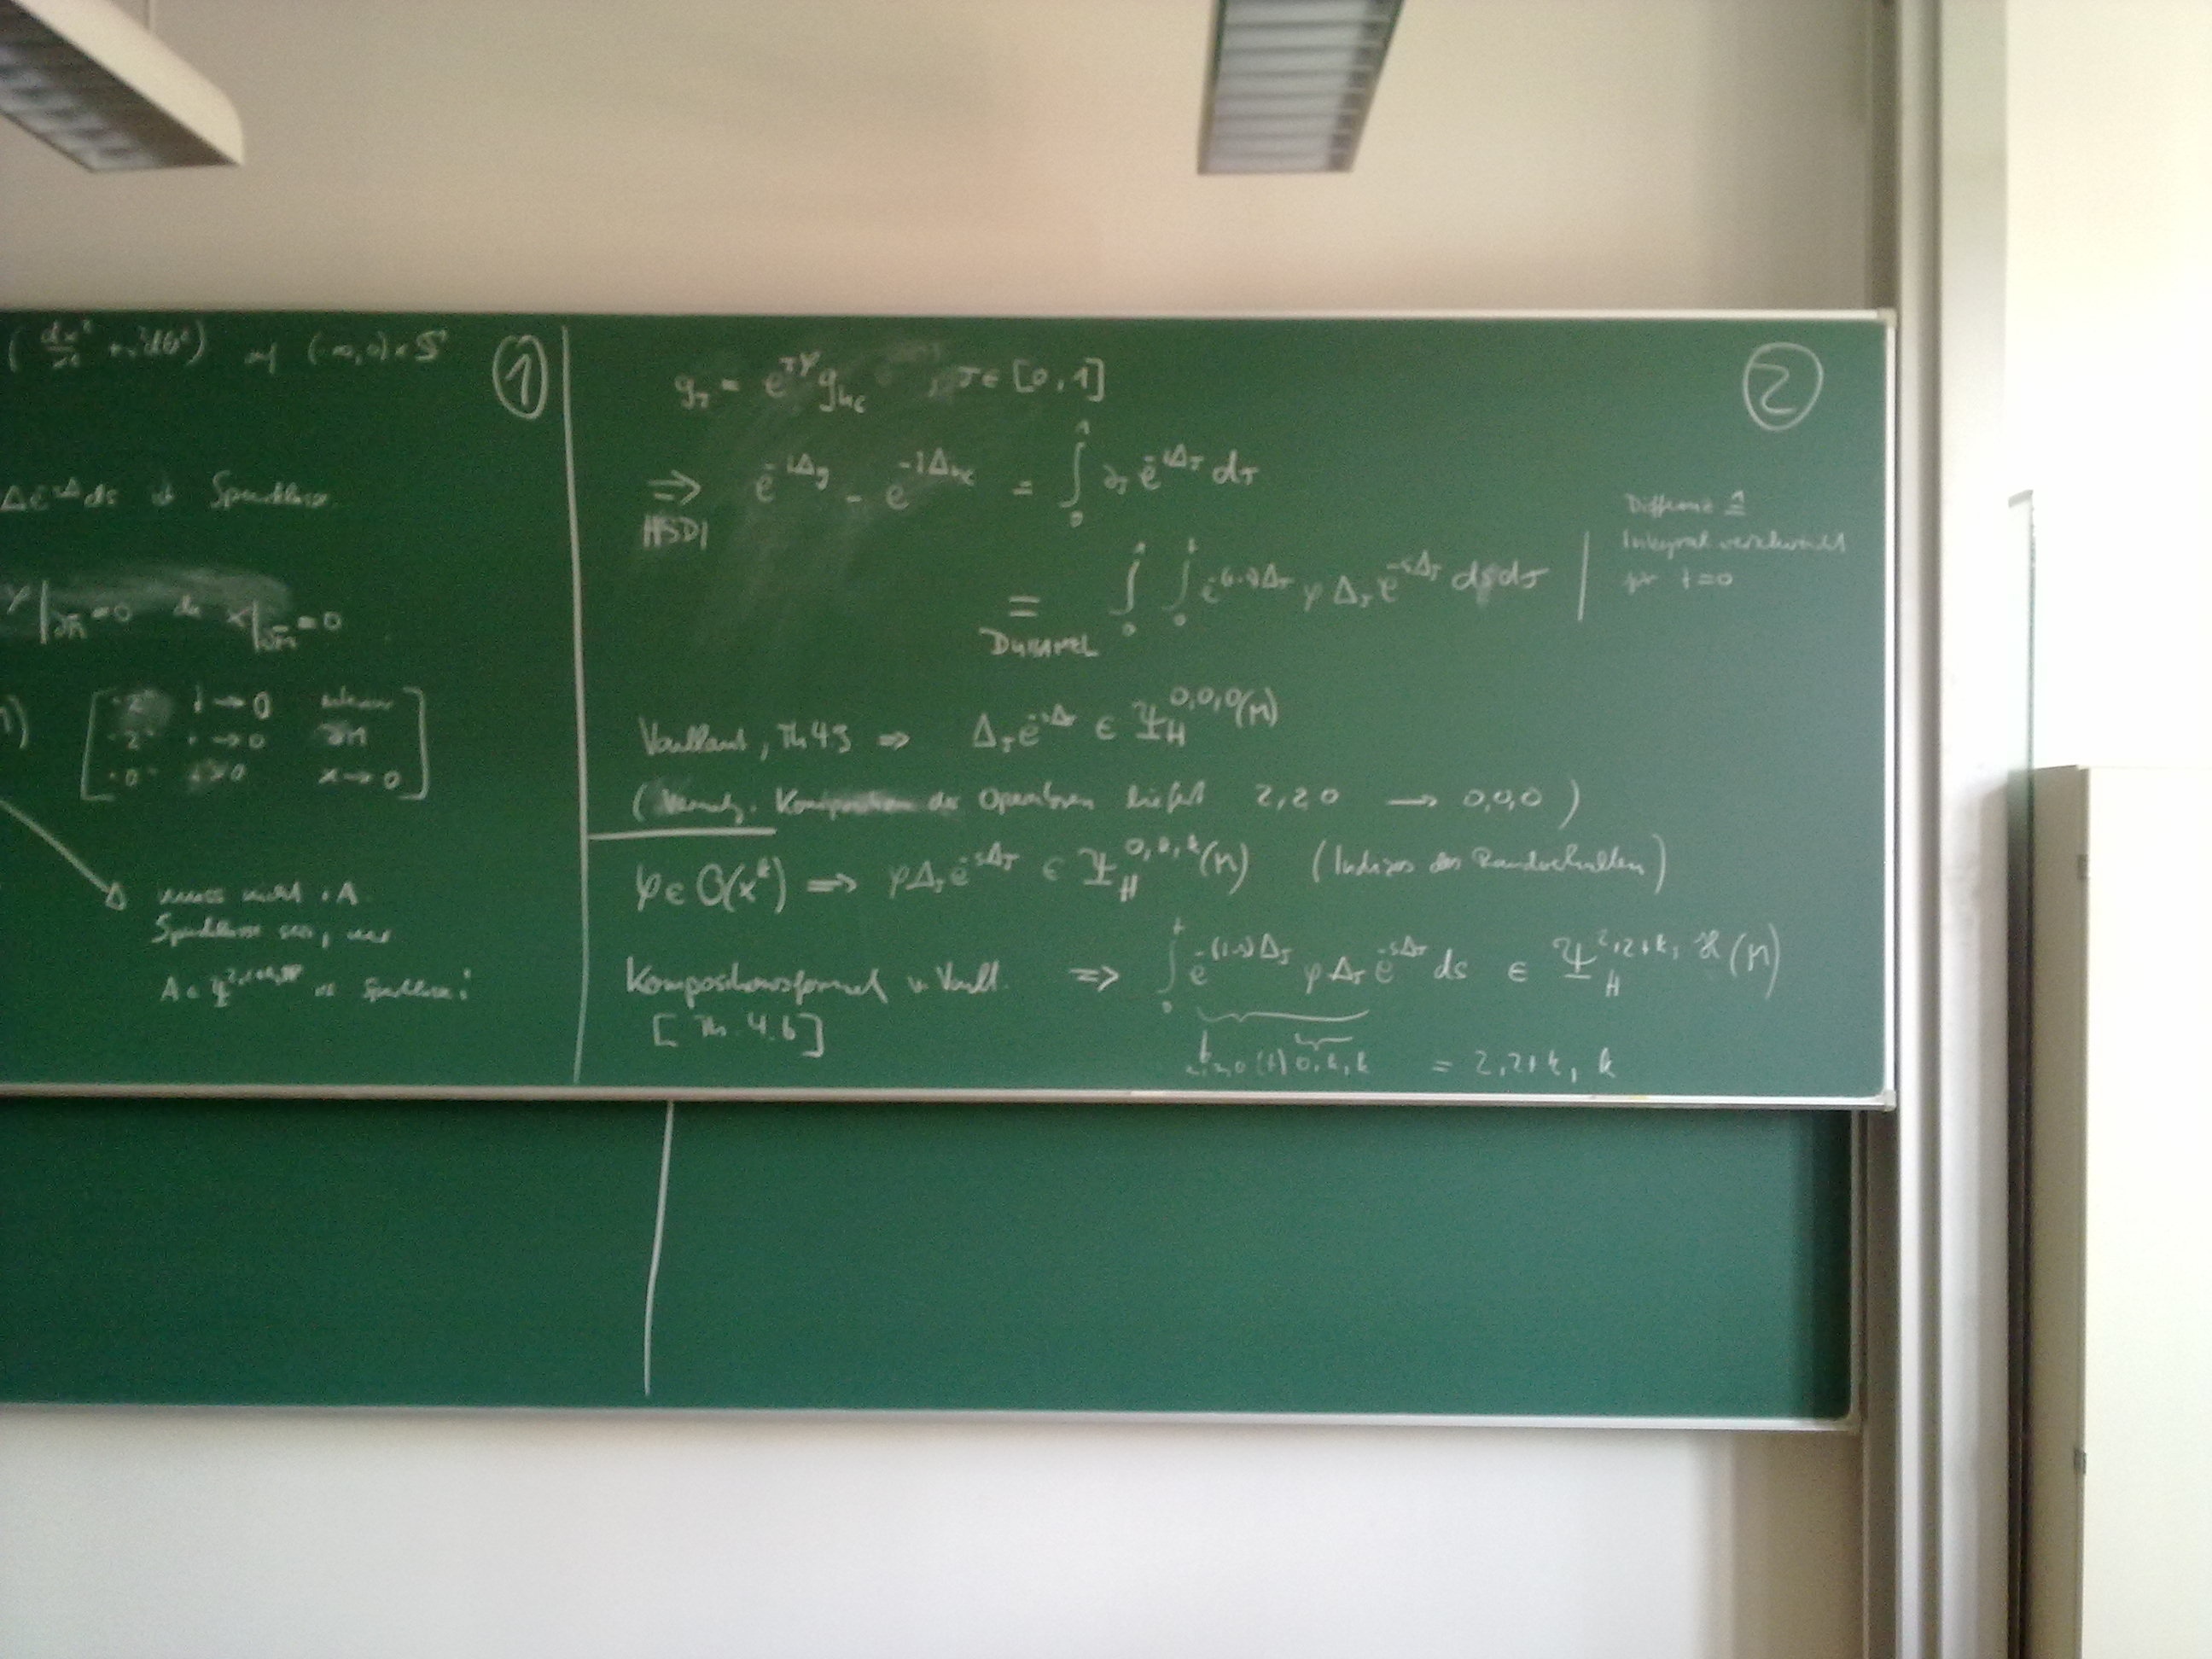 (dx²/x² + x²dθ²) auf (-∞,0)×S¹
①
Δe^{-sΔ} ds ist Spurklasse.
φ|_{∂M̄} = 0 da x|_{∂M̄} = 0
"2" t → 0
"2" t → 0 ∂M
"0" t > 0 x → 0
Δ muss nicht
Spurklasse sein, nur
Spurklasse!
②
g_τ = e^{τφ} g_{hc} , τ ∈ [0,1]
⟹ e^{-tΔ_g} - e^{-tΔ_{hc}} = ∫_0^1 ∂_τ e^{-tΔ_τ} dτ
HSDI
= ∫_0^1 ∫_0^t e^{-(t-s)Δ_τ} φ Δ_τ e^{-sΔ_τ} ds dτ
DUHAMEL
Differenz ≙
Integral verschwindet
für t=0
Vaillant, Th 4.9 ⟹ Δ_τ e^{-sΔ_τ} ∈ Ψ_H^{0,0,0}(M)
Komposition der Operatoren liefert 2,2,0 → 0,0,0 )
φ ∈ O(x^k) ⟹ φΔ_τ e^{-sΔ_τ} ∈ Ψ_H^{0,k,k}(M) (Indizes des Randverhalten)
Kompositionsformel v. Vaill. ⟹ ∫_0^t e^{-(t-s)Δ_τ} φ Δ_τ e^{-sΔ_τ} ds ∈ Ψ_H^{2,2+k,k}(M)
[Th. 4.6]
2,2,0 (+) 0,k,k = 2,2+k, k